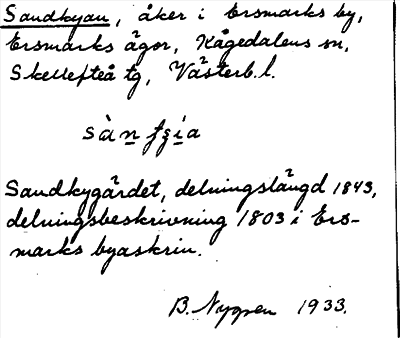 Sandkyan, åker i Ersmarks by,
Ersmarks ägor, Kågedalens sn,
Skellefteå tg, Västerb. l.
Sandkygärdet, delningslängd 1843,
delningsbeskrivning 1803 i Ers-
marks byaskrin.
B. Nygren 1933.